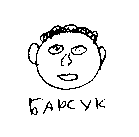 БАРСУК